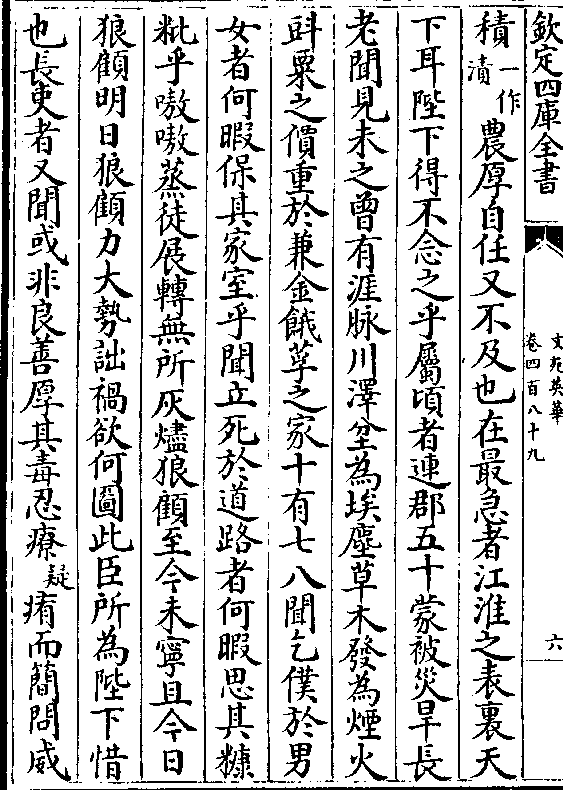 欽定四庫全書
文苑英華
卷四百八十九
六
積一作漬農厚自任又不及也在最急者江淮之表裏天
下耳陛下得不念之乎屬頃者連郡五十蒙被災旱長
老聞見未之曾有涯脉川澤坌為埃塵草木發為煙火
㪷粟之價重於兼金餓莩之家十有七八聞乞僕於男
女者何暇保其家室乎聞立死於道路者何暇思其糠
粃乎嗷嗷蒸徒展轉無所灰燼狼顧至今未寧且今日
狼顧明日狼顧力大勢詘禍欲何圖此臣所為陛下惜
也長吏者又聞或非良善厚其毒忍療疑痏而簡問威